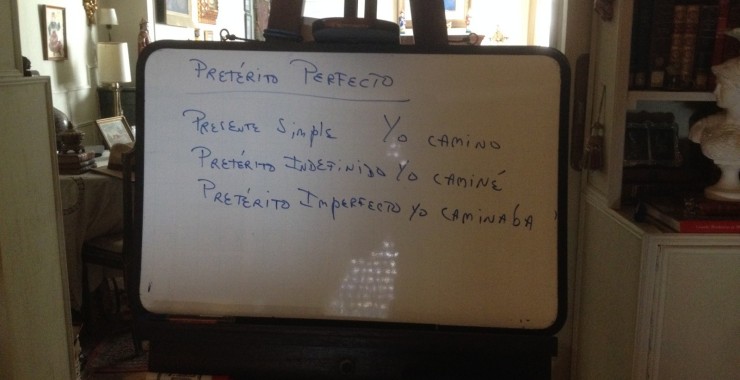 PRETÉRITO PERFECTO
PRESENTE SIMPLE YO CAMINO
PRETÉRITO INDEFINIDO YO CAMINÉ
PRETÉRITO IMPERFECTO YO CAMINABA